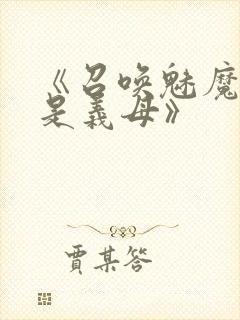 《召唤魅魔
是义母》
贾某答